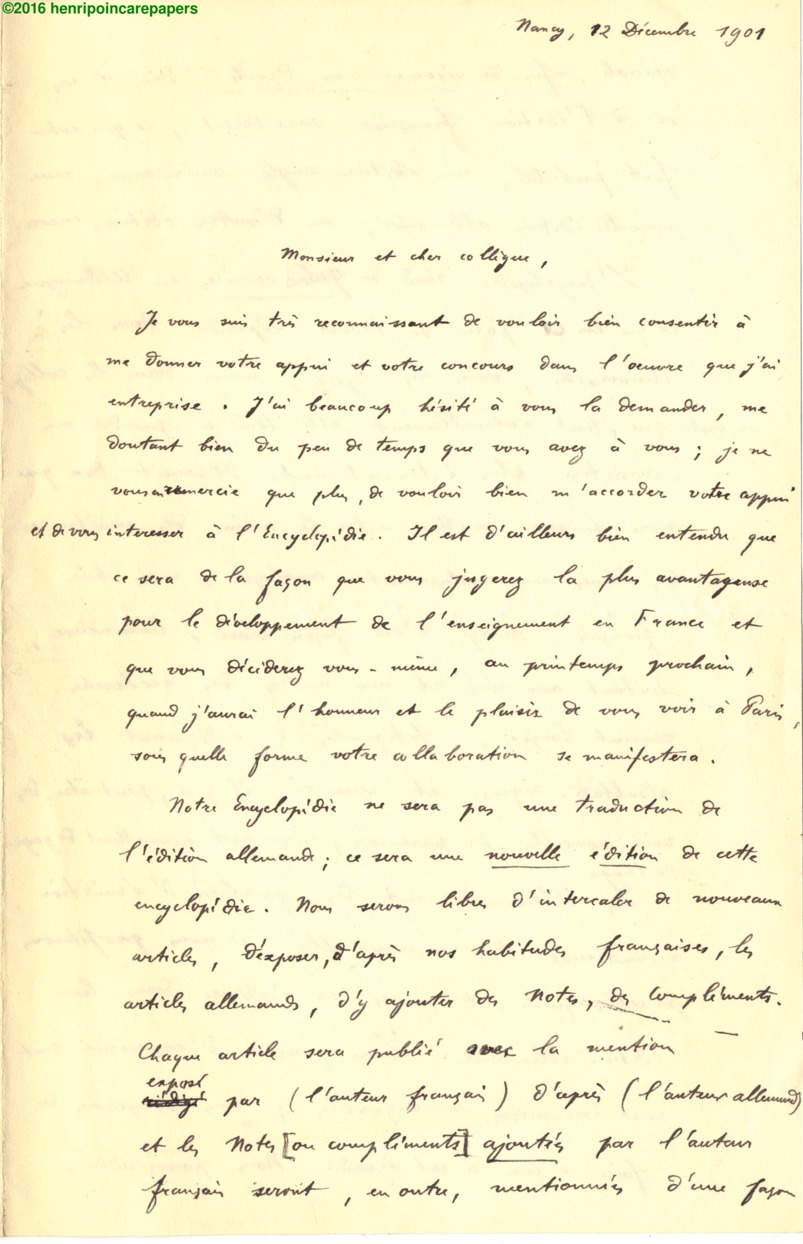 ©2016 henripoincarepapers
Nancy, 12 Décembre 1901
Monsieur et cher collègue,
Je vous suis très reconnaissant de vouloir bien consentir à
me donner votre appui et votre concours dans l'oeuvre que j'ai
entreprise. J'ai beaucoup hésité à vous la demander, me
doutant bien du peu de temps que vous avez à vous ; je ne
vous en remercie que plus, de vouloir bien m'accorder votre appui
et de vous interesser à l'Encyclopédie. Il est d'ailleurs bien entendu que
ce sera de la façon que vous jugerez la plus avantageuse
pour le développement de l'enseignement en France et
que vous déciderez vous-même, au printemps prochain,
quand j'aurai l'honneur et le plaisir de vous voir à Paris,
sous quelle forme votre collaboration se manifestera.
Notre Encyclopédie ne sera pas une traduction de
l'édition allemande ; ce sera une nouvelle édition de cette
encyclopédie. Nous serons libres d'intercaler de nouveaux
articles, d'éxposer, d'après nos habitudes françaises, les
articles allemands, d'y ajouter des Notes, des compléments.
Chaque article sera publié avec la mention
exposé
rédigé par (l'auteur français) d'après (l'auteur allemand)
et les Notes [ou compléments] ajoutés par l'auteur
français seront, en outre, mentionnés d'une façon